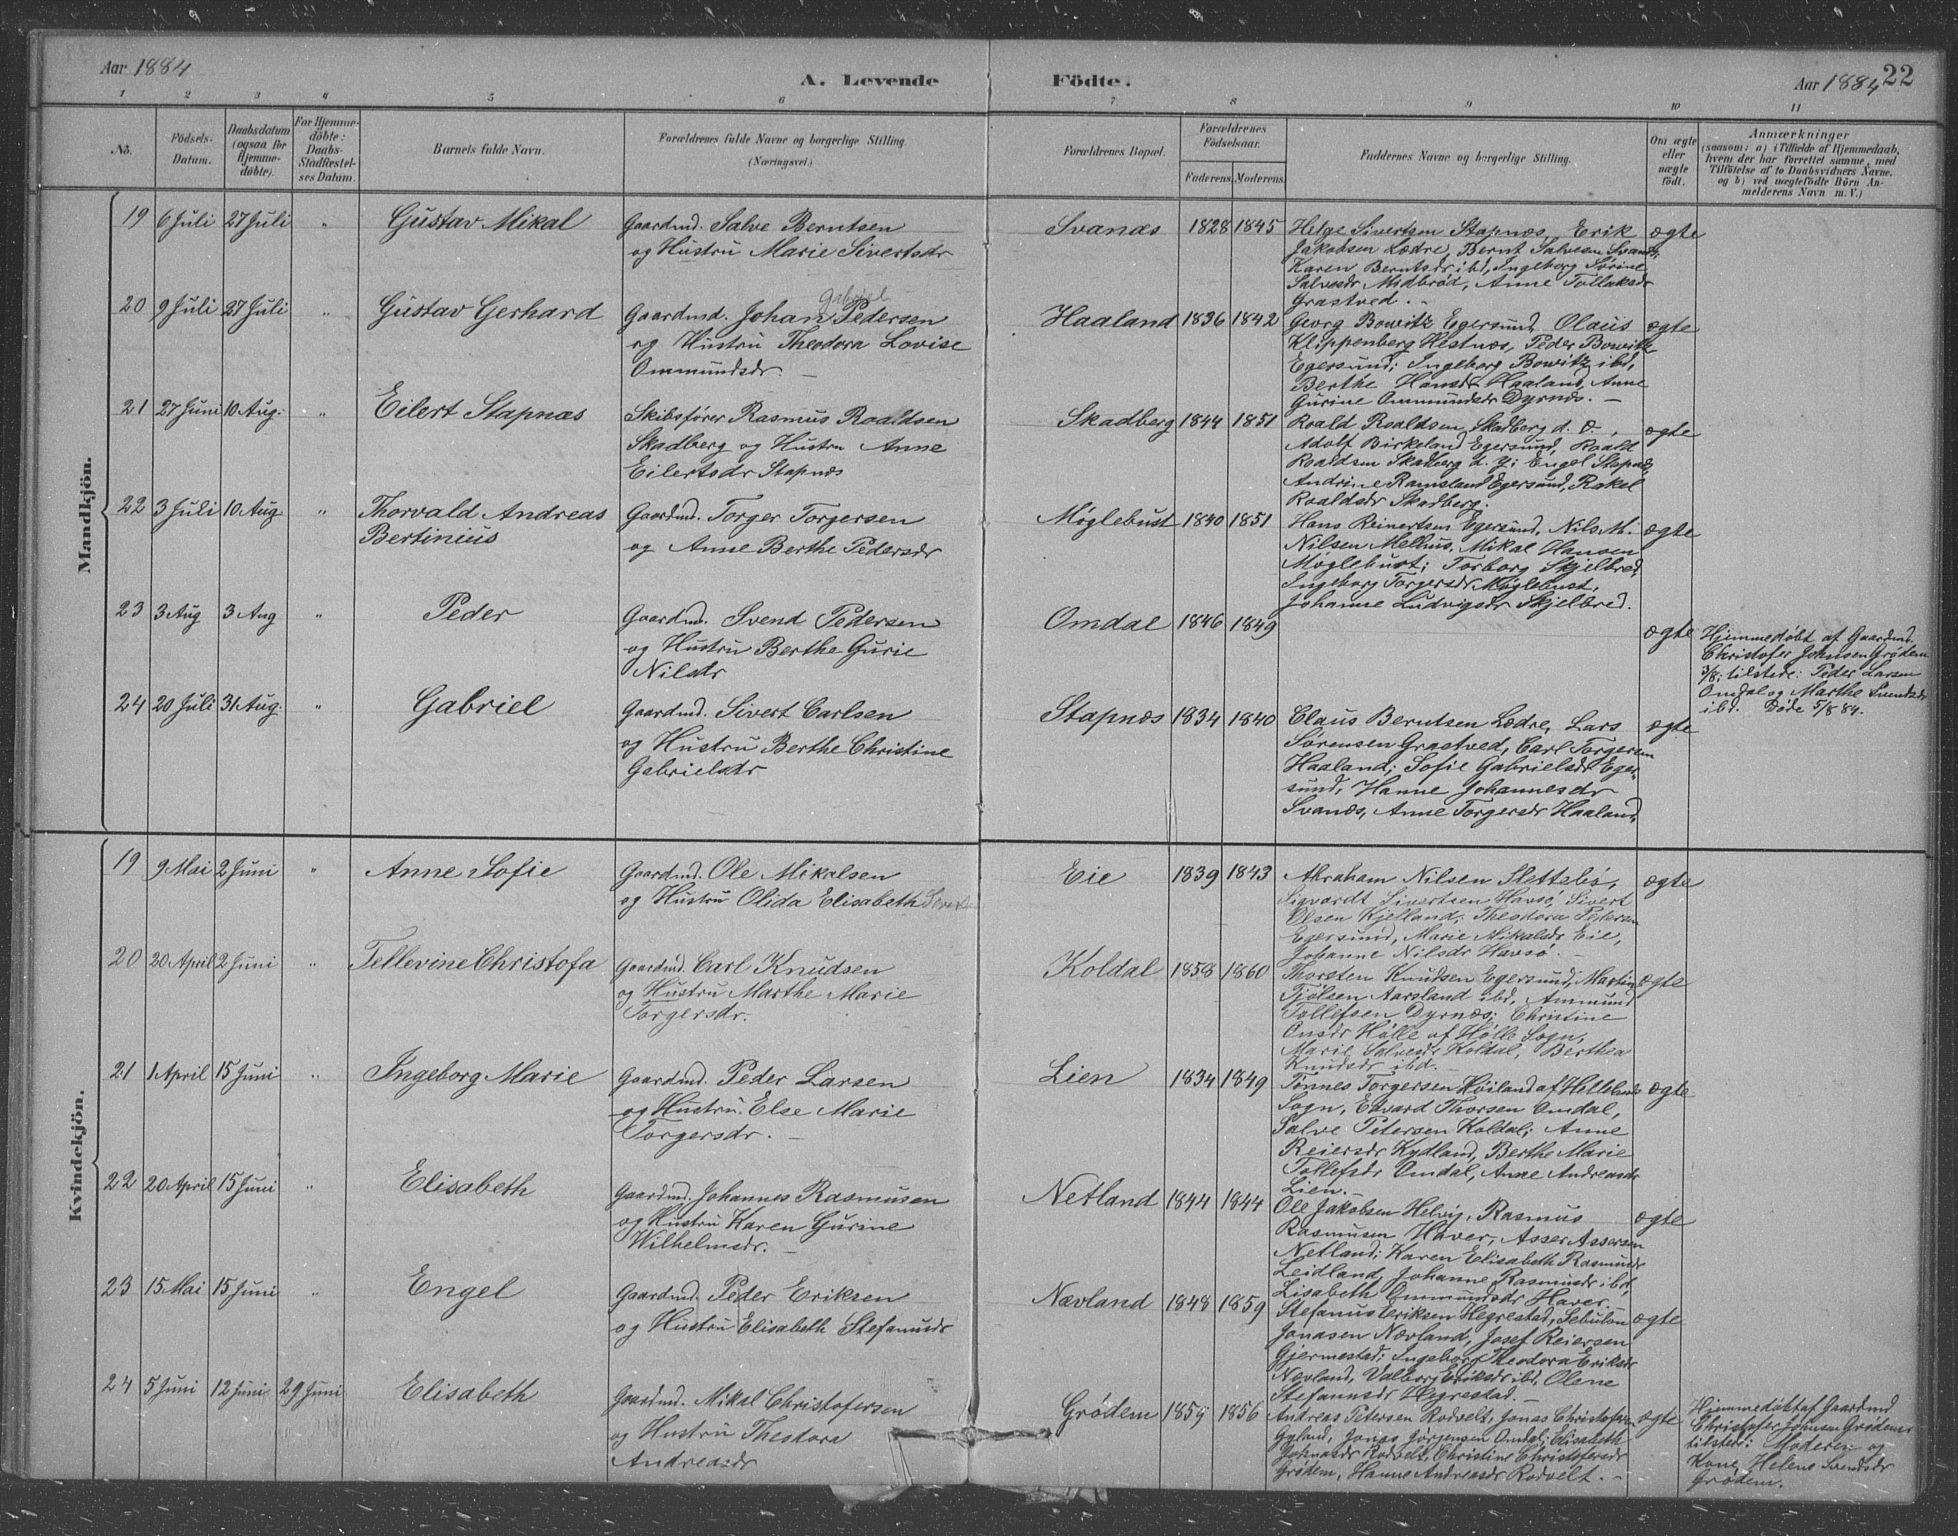 Aar 1884
A. Levende
Födte.
Aar 1884
22
1 2 3 4 5 6 7 8 9 10 11
No.
Födsels-
Datum.
Daabsdatum
(ogsaa for
Hjemme-
döbte).
For Hjemme-
döbte:
Daabs-
Stadfæstel-
ses Datum.
Barnets fulde Navn.
Forældrenes fulde Navne og borgerlige Stilling.
(Næringsvei.)
Forældrenes Bopæl.
Forældrenes
Födselsaar.
Faderens.
Moderens.
Faddernes Navne og borgerlige Stilling.
Om ægte
eller
uægte
födt.
Anmærkninger
(saasom: a) i Tilfælde af Hjemmedaab,
hvem der har forrettet samme, med
Tilföielse af to Daabsvidners Navne,
og b) ved uægtefödte Börn An-
melderens Navn m. V.)
Mandkjön.
19 6 Juli 27 Juli " Gustav Mikal
Gaardmd. Salve Berntsen
og Hustru Marie Sivertsdr
Svanæs 1828 1845
Helge Sivertsen Stapnæs, Erik
Jakobsen Lædre, Bernt Salvesen Svanæs,
Karen Berntsdr ibd, Ingeborg Sørine
Salvesdr Midbrød, Anne Tollaksdr
Grastved. -
ægte
20 9 Juli 27 Juli " Gustav Gerhard
Gabriel
Gaardmd. Johan Pedersen
og Hustru Theodora Lovise
Ommundsdr. -
Haaland 1836 1842
Georg Bowitz Egersund, Olaus
Klippenberg Hestnæs, Peder Bowitz
Egersund; Ingeborg Bowitz ibd,
Berthe Hansdr Haaland, Anne
Gurine Ommundsdr Dyrnæs. -
ægte
21 27 Juni 10 Aug. " Eilert Stapnæs
Skibsfører Rasmus Roaldsen
Skadberg og Hustru Anne
Eilertsdr Stapnæs
Skadberg 1844 1851
Roald Roaldsen Skadberg d. Æ.,
Adolf Birkeland Egersund, Roald
Roaldsen Skadberg d. y; Engel Stapnæs,
Andrine Ramsland Egersund, Rakel
Roaldsdr Skadberg.
ægte
22 3 Juli 10 Aug " Thorvald Andreas
Bertinius
Gaardmd. Torger Torgersen
og Anne Berthe Pedersdr
Møglebust 1840 1851
Hans Reinertsen Egersund, Nils M.
Nilsen Melhus, Mikal Hansen
Møglebust; Torborg Skjelbred,
Ingeborg Torgersdr Møglebust,
Johanne Ludvigsdr Skjelbred.
ægte
23 3 Aug 3 Aug " Peder
Gaardmd. Svend Pedersen
og Hustru Berthe Gurie
Nilsdr
Omdal 1846 1849
ægte
Hjemmedøbt af Gaardmd.
Christofer Johnsen Grødem
3/8; tilstede: Peder Larsen
Omdal og Marthe Svendsdr
ibd. Døde 5/8 84.
24 20 Juli 31 Aug. " Gabriel
Gaardmd. Sivert Carlsen
og Hustru Berthe Christine
Gabrielsdr
Stapnæs 1834 1840
Claus Berntsen Lædre, Lars
Sørensen Grastved, Carl Torgersen
Haaland; Sofie Gabrielsdr Eger-
sund, Hanne Johannesdr
Svanæs, Anne Torgersdr Haaland.
ægte
Kvindekjön.
19 9 Mai 2 Juni " Anne Sofie
Gaardmd. Ole Mikalsen
og Hustru Olida Elisabeth
Eie 1839 1843
Abraham Nilsen Slettebø,
Sigvardt Sivertsen Havsø, Sivert
Olsen Kjelland; Theodora Petersen
Egersund, Marie Mikalsdr Eie,
Johanne Nilsdr Havsø. -
ægte
20 20 April 2 Juni " Tellevine Christofa
Gaardmd. Carl Knudsen
og Hustru Marthe Marie
Torgersdr.
Koldal 1858 1860
Thorsten Knudsen Egersund, Martin
Tjølsen Aarsland ibd, Ammund
Tollefsen Dyrnæs; Christine
Onsdr Hølle af Hølle Sogn,
Marie Salvesdr Koldal, Berthea
Knudsdr ibd. -
ægte
21 1 April 15 Juni " Ingeborg Marie
Gaardmd. Peder Larsen
og Hustru Else Marie
Torgersdr. -
Lien 1834 1849
Tønnes Torgersen Høiland af Hellelands
Sogn, Edvard Thorsen Omdal,
Salve Petersen Koldal; Anne
Reiersdr Kydland, Berthe Marie
Tollefsdr Omdal, Anne Andreasdr
Lien. -
ægte
22 20 April 15 Juni " Elisabeth
Gaardmd. Johannes Rasmusen
og Hustru Karen Gurine
Wilhelmsdr. -
Netland 1844 1844
Ole Jakobsen Helvig, Rasmus
Rasmusen Haver, Asser Assersen
Netland; Karen Elisabeth Rasmusdr
Leidland, Johanne Rasmusdr ibd,
Lisabeth Ommundsdr Haver. -
ægte
23 15 Mai 15 Juni " Engel
Gaardmd. Peder Eriksen
og Hustru Elisabeth Stefanusdr
Nævland 1848 1859
Stefanus Eriksen Hegrestad, Sebulon
Jonasen Nævland, Josef Reiersen
Gjermestad; Ingeborg Theodora Eriksdr
Nævland, Valborg Eriksdr ibd, Olene
Stefanusdr Hegrestad. -
ægte
24 5 Juni 12 Juni 29 Juni Elisabeth
Gaardmd. Mikal Christofersen
og Hustru Theodora
Andreasdr
Grødem 1859 1856
Andreas Petersen Rodvelt, Jonas Christofersen
Gyland, Jonas Jørgensen Omdal; Elisabeth
Rodvelt, Christine Christofersdr
Grødem, Hanne Andreasdr Rodvelt. -
ægte
Hjemmedøbt af Gaardmd
Christofer Johnsen Grødem;
tilstede: Moderen og
Kone Helene Svendsdr
Grødem.